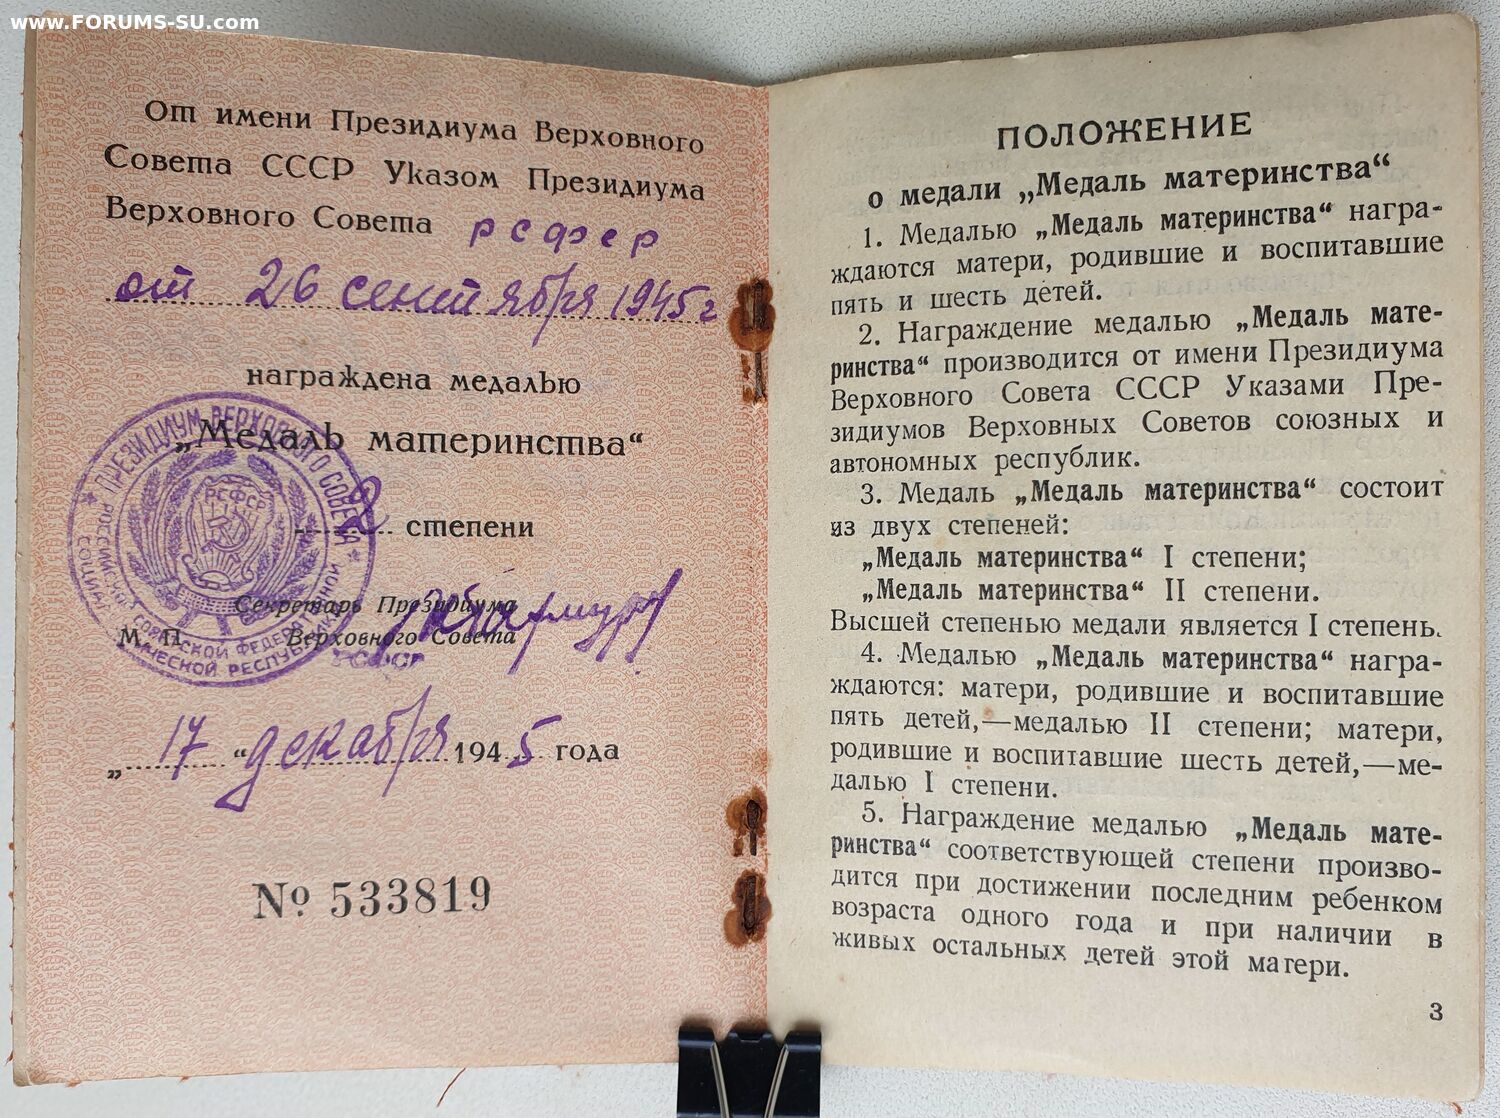 www.FORUMS-SU.com
От имени Президиума Верховного
Совета СССР Указом Президиума
Верховного Совета РСФСР
от 26 сентября 1945 г
награждена медалью
„Медаль материнства“
2 степени
Секретарь Президиума
М. П. Верховного Совета
РСФСР
„ 17 “ декабря 1945 года
№ 533819
ПРЕЗИДИУМ ВЕРХОВНОГО СОВЕТА
РСФСР
ПОЛОЖЕНИЕ
о медали „Медаль материнства“
1. Медалью „Медаль материнства“ награ-
ждаются матери, родившие и воспитавшие
пять и шесть детей.
2. Награждение медалью „Медаль мате-
ринства“ производится от имени Президиума
Верховного Совета СССР Указами Пре-
зидиумов Верховных Советов союзных и
автономных республик.
3. Медаль „Медаль материнства“ состоит
из двух степеней:
„Медаль материнства“ I степени;
„Медаль материнства“ II степени.
Высшей степенью медали является I степень.
4. Медалью „Медаль материнства“ награ-
ждаются: матери, родившие и воспитавшие
пять детей,—медалью II степени; матери,
родившие и воспитавшие шесть детей,—ме-
далью I степени.
5. Награждение медалью „Медаль мате-
ринства“ соответствующей степени произво-
дится при достижении последним ребенком
возраста одного года и при наличии в
живых остальных детей этой матери.
3